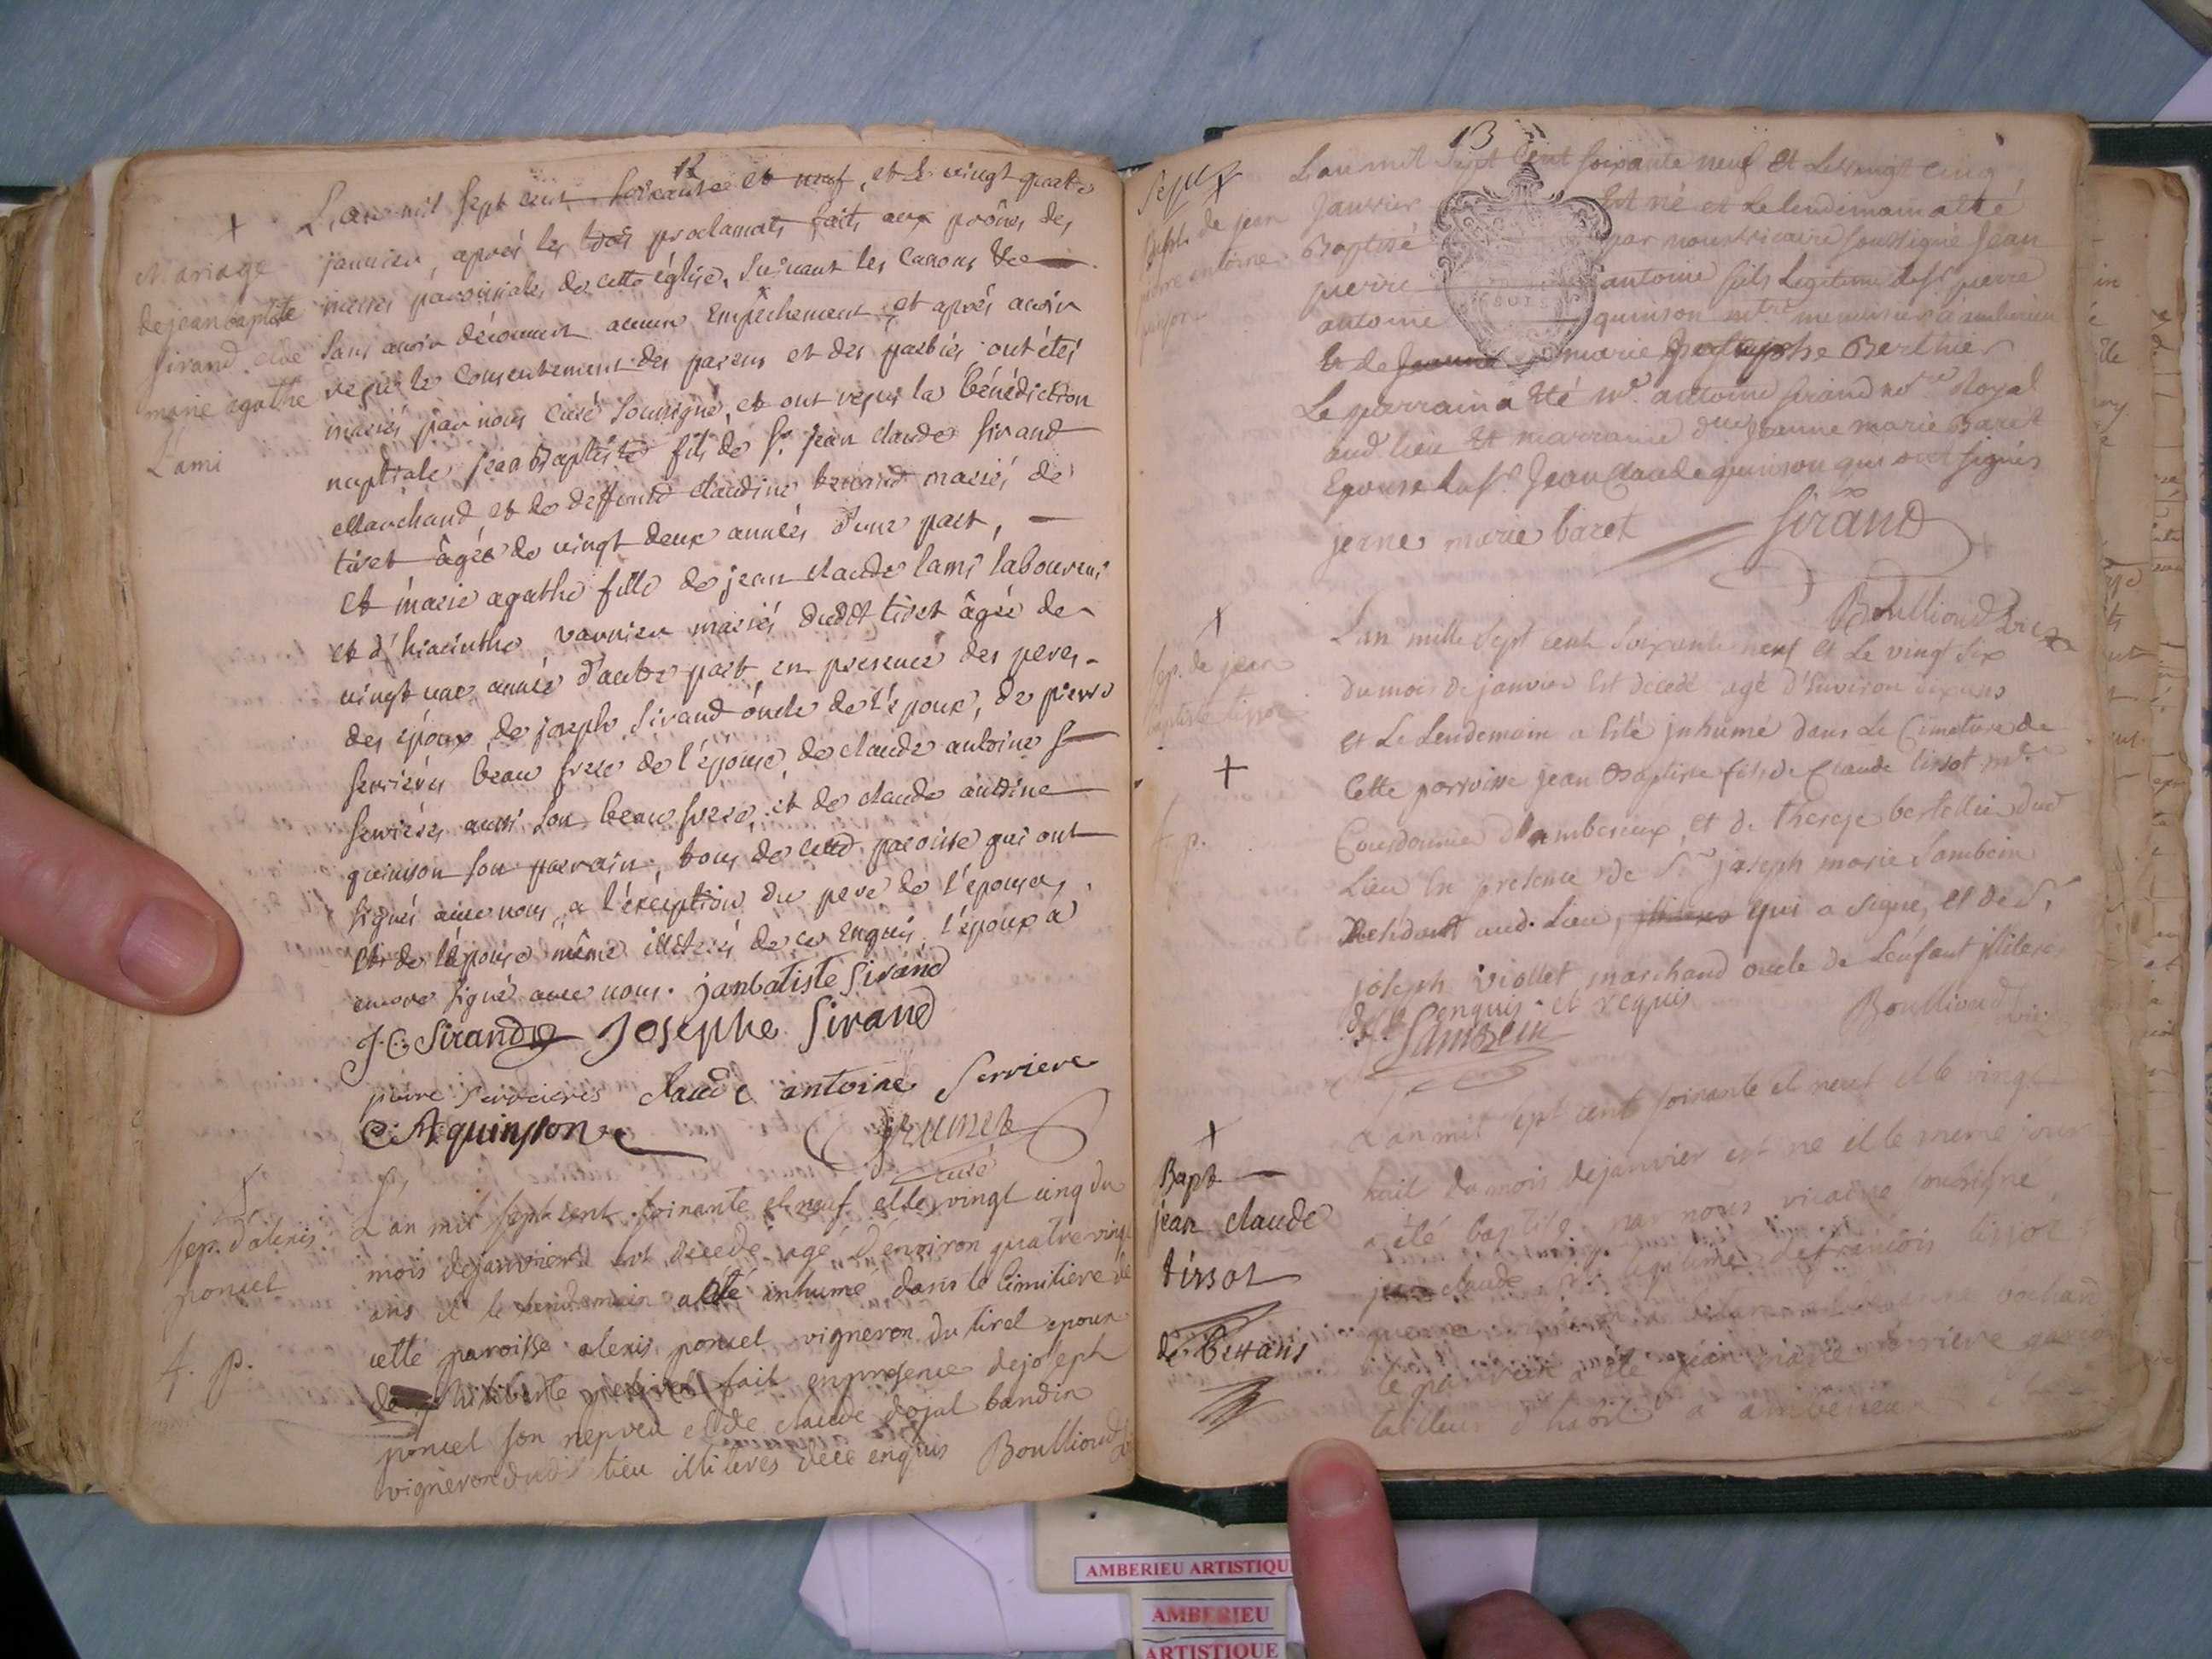 12
L'an mil sept cent soixante et neuf, et le vingt quatre
janvier, aprés les trois proclamats faits aux prônes des
messes paroissiales de cette église, suivant les canons de
sans avoir découvert aucun Empêchement et aprés avoir
reçu le consentement des parens et des parties ont étés
mariés par nous curé soussigné, et ont reçus la bénédiction
nuptiale jean Baptiste fils de Sr. jean claude sirand
Marchand et de deffunte claudine mariés de
tiret âgé de vingt deux années d'une part,
et marie agathe fille de jean claude lami laboureur
et d'hiacinthe vannier mariés dudit tiret âgée de
vingt une année d'autre part en presence des peres
des époux, de joseph Sirand oncle de l'époux, de pierre
serrieres beau frere de l'épouse, de claude antoine
serrieres aussi son beau frere, et de claude antoine
quinson son parrain, tous de cette paroisse qui ont
signés avec nous, a l'exception du pere de l'épouse,
et de l'épouse même illiterés de ce Enquis, l'époux a
encore signé avec nous. janbatiste sirand
J.C. Sirand Josephe Sirand
pierre serrieres claude antoine serriere
C. A quinson
curé
Mariage
de jean baptiste
sirand avec
marie agathe
Lami
L'an mil sept cent soixante et neuf et le vingt cinq du
mois de janvier est decedé agé d'environ quatre vingt
ans et le lendemain a été inhumé dans le cimitiere de
cette paroisse alexis poncet vigneron du tiret epoux
de philiberte fait en presence de joseph
poncet son nepveu et de claude dojat bandin
vigneron dudit lieu illiteres de ce enquis Boullioud
sep. d'alexis
poncet
f. p.
13
L'an mil Sept Cent soixante neuf Et Le vingt cinq
Janvier Est né et Le lendemain a été
Baptisé par nous vicaire soussigné Jean
pierre antoine fils Legitime de Sr. pierre
antoine quinson mtre menuisier a amberieu
Et de marie Berthier
Le parrain a été mr. antoine sirand nore Royal
aud. lieu Et marraine Jeanne marie Baret
Epouse du Sr. Jean Claude quinson qui ont signés
jenne marie baret Sirand
Boullioud vic
Bapt. de jean
pierre antoine
quinson
L'an mille Sept cent Soixante neuf et Le vingt Six
du mois de janvier Est decedé agé d'Environ dix ans
et Le Lendemain a Eté jnhumé dans Le Cimetiere de
Cette parroisse jean Baptiste fils de Claude tissot mre
Cordonnier d'amberieux, et de therese bertellier dud
Lieu En presence de Sr. joseph marie Sambein
Residant aud. Lieu, qui a signé, et de Sr.
joseph Viollet marchand oncle de L'enfant jllitere
de ce enquis et requis Boullioud vic.
Sambein
Sep. de jean
baptiste tissot
f. p.
L'an mil sept cent soixante et neuf et le vingt
huit du mois de janvier est né et le meme jour
a été baptisé par nous vicaire soussigné
jean claude fils legitime de francois tissot
le parrain a été jean marie serriere garçon
tailleur d'habit a amberieux
Bapt
jean claude
tissot
de Bettans
AMBERIEU ARTISTIQU
AMBERIEU
ARTISTIQUE